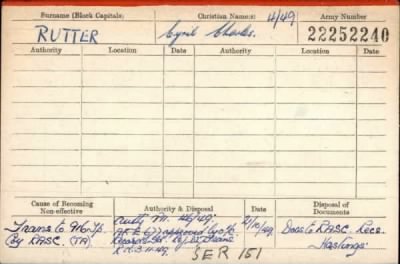 Surname (Block Capitals) Christian Name(s) 4/49 Army Number
RUTTER Cyril Charles. 22252240
Authority Location Date Authority Location Date
Cause of Becoming Non-effective Authority & Disposal Date Disposal of Documents
Trans to
Coy RASC. (TA)
approved by o/c
Records
21/10/49
Docs to RASC. Recs.
Hastings
SER 151